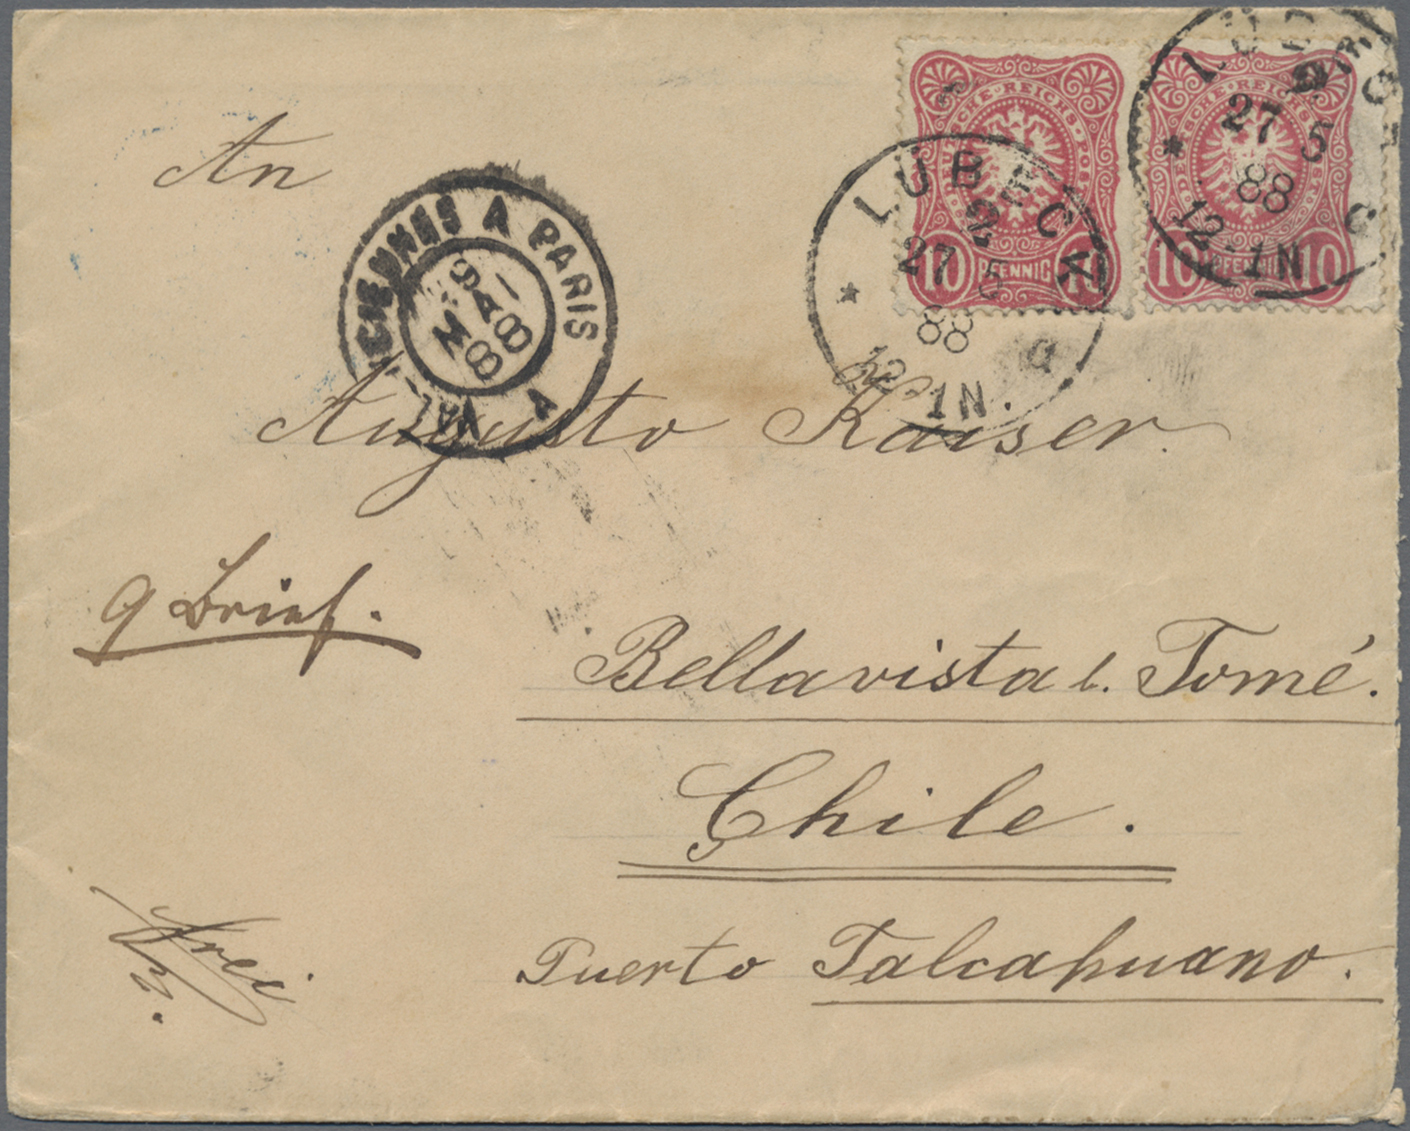 An
Augusto Kaiser.
q Brief.
Bellavista b. Tomé.
Chile.
Puerto Talcahuano.
Frei.
LÜBECK
27 5
88
12-1N.
LÜBECK
27 5
88
12-1N
DEUTSCHE REICHS-POST
10 PFENNIG 10
10 PFENNIG 10
A PARIS
MAI
88
A